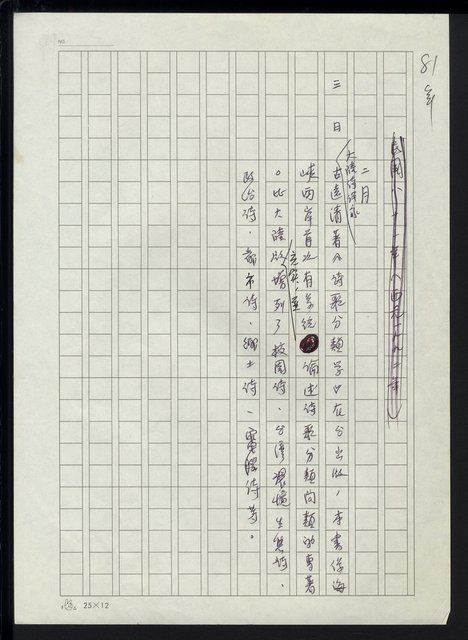 81年
NO.
民國八十一年(西元一九九二年
二月
三日
大陸詩評家
古遠清著《詩歌分類學》在台出版,本書係海
峽兩岸首次有系統論述詩歌分類問題的專著
。比大陸版增列了校園詩、台灣環境生態詩、
充實
政治詩、都市詩、鄉土詩、
詩等。
25×12